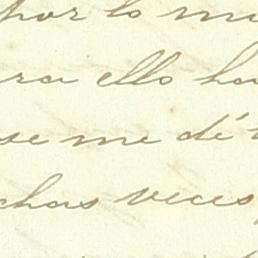 por lo m
ra ello ha
se me dé t
chas veces,